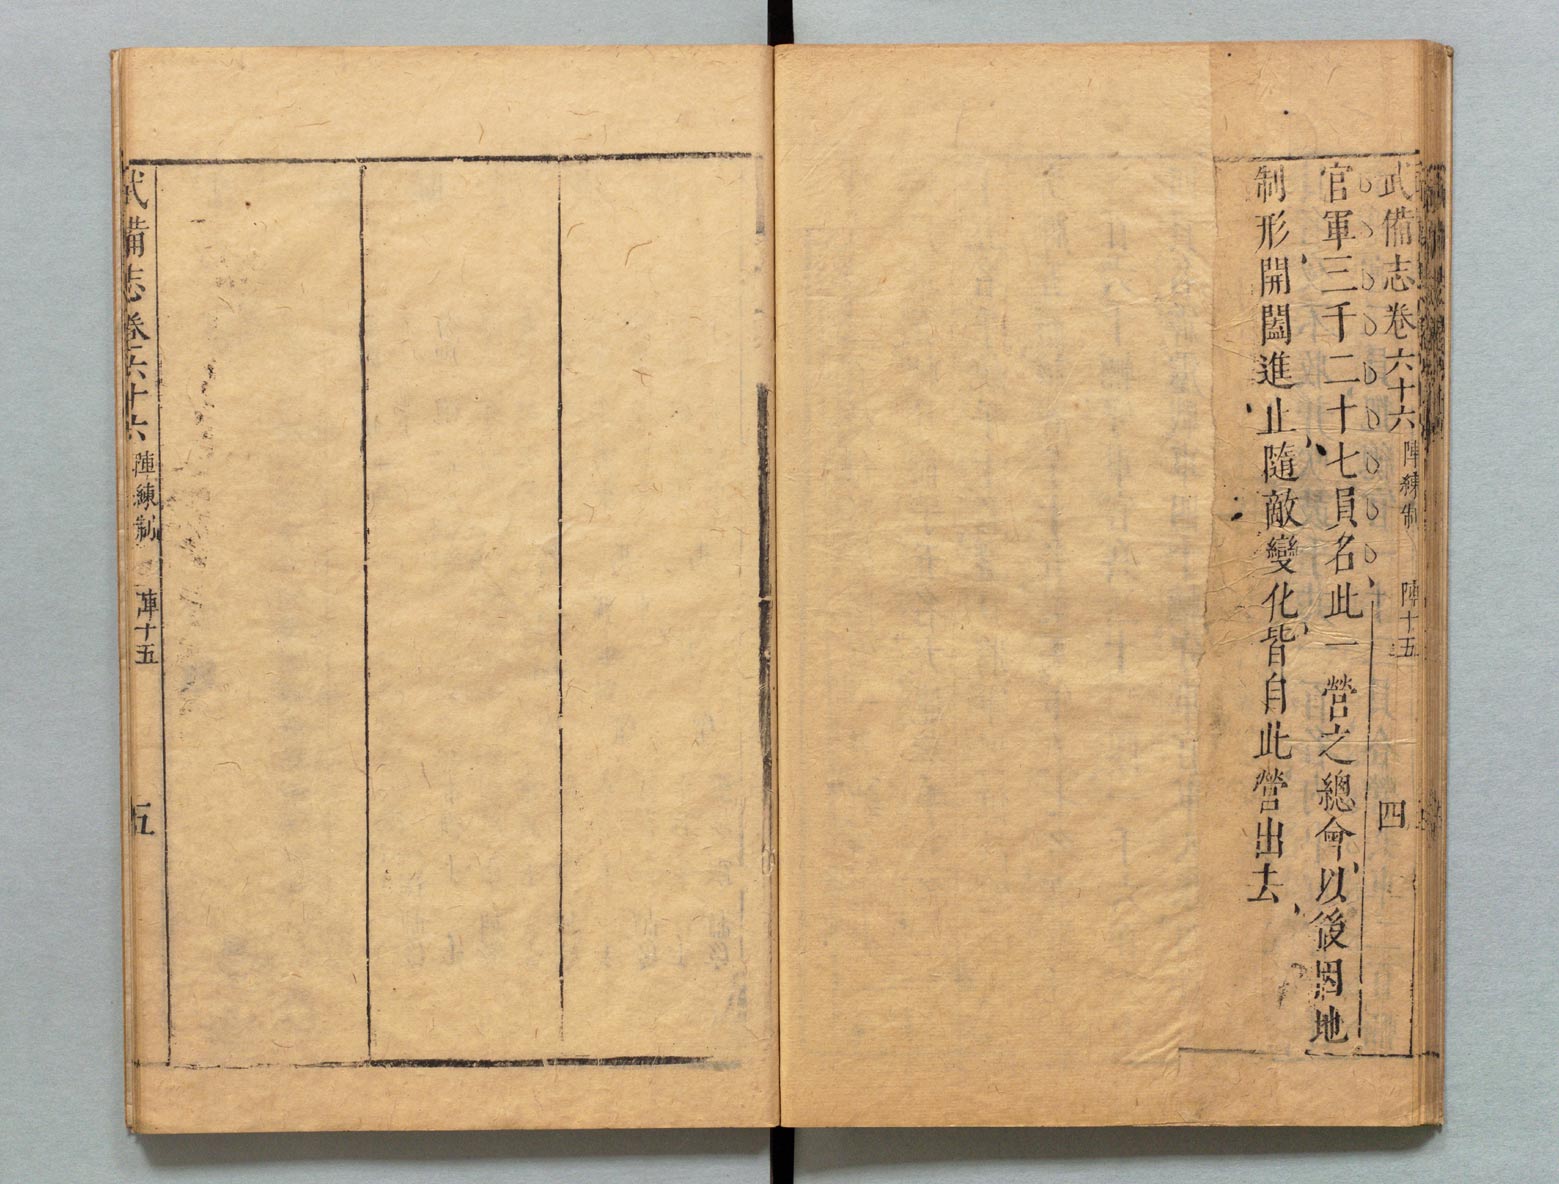 武備志卷六十六 陣練制 陣十五 四
官軍三千二十七員名此一營之總會以後因地
制形開闔進止隨敵變化皆自此營出去
武備志卷六十六 陣練制 陣十五 五